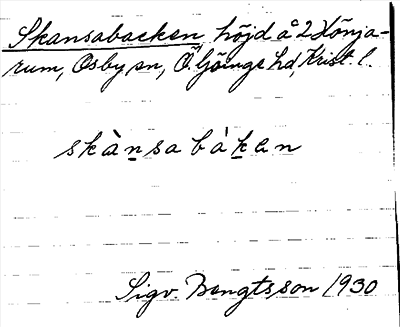 Skansabacken, höjd å 2 Hönja-
rum, Osby sn, Ö. Göinge hd, Krist. l.
skànsa bàken
Sigv. Bengtsson 1930